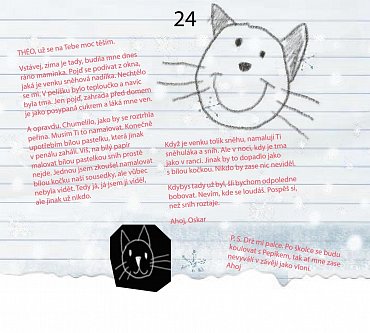 24
THEO, už se na Tebe moc těším.
Vstávej, zima je tady, budila mne dnes
ráno maminka. Pojď se podívat z okna,
jaká je venku sněhová nadílka. Nechtělo
se mi. V pelíšku bylo teploučko a navíc
byla tma. Jen pojď, zahrada před domem
je jako posypaná cukrem a láká mne ven.
A opravdu. Chumelilo, jako by se roztrhla
peřina. Musím Ti to namalovat. Konečně
upotřebím bílou pastelku, která jinak
v penálu zahálí. Víš, na bílý papír
malovat bílou pastelkou sníh prostě
nejde. Jednou jsem zkoušel namalovat
bílou kočku naší sousedky, ale vůbec
nebyla vidět. Tedy já, já jsem ji viděl,
ale jinak už nikdo.
Když je venku tolik sněhu, namaluji Ti
sněhuláka a sníh. Ale v noci, kdy je tma
jako v ranci. Jinak by to dopadlo jako
s bílou kočkou. Nikdo by zase nic neviděl.
Kdybys tady už byl, šli bychom odpoledne
bobovat. Nevím, kde se loudáš. Pospěš si,
než sníh roztaje.
Ahoj, Oskar
P. S. Drž mi palce. Po školce se budu
koulovat s Pepíkem, tak ať mne zase
nevyválí v závěji jako vloni.
Ahoj